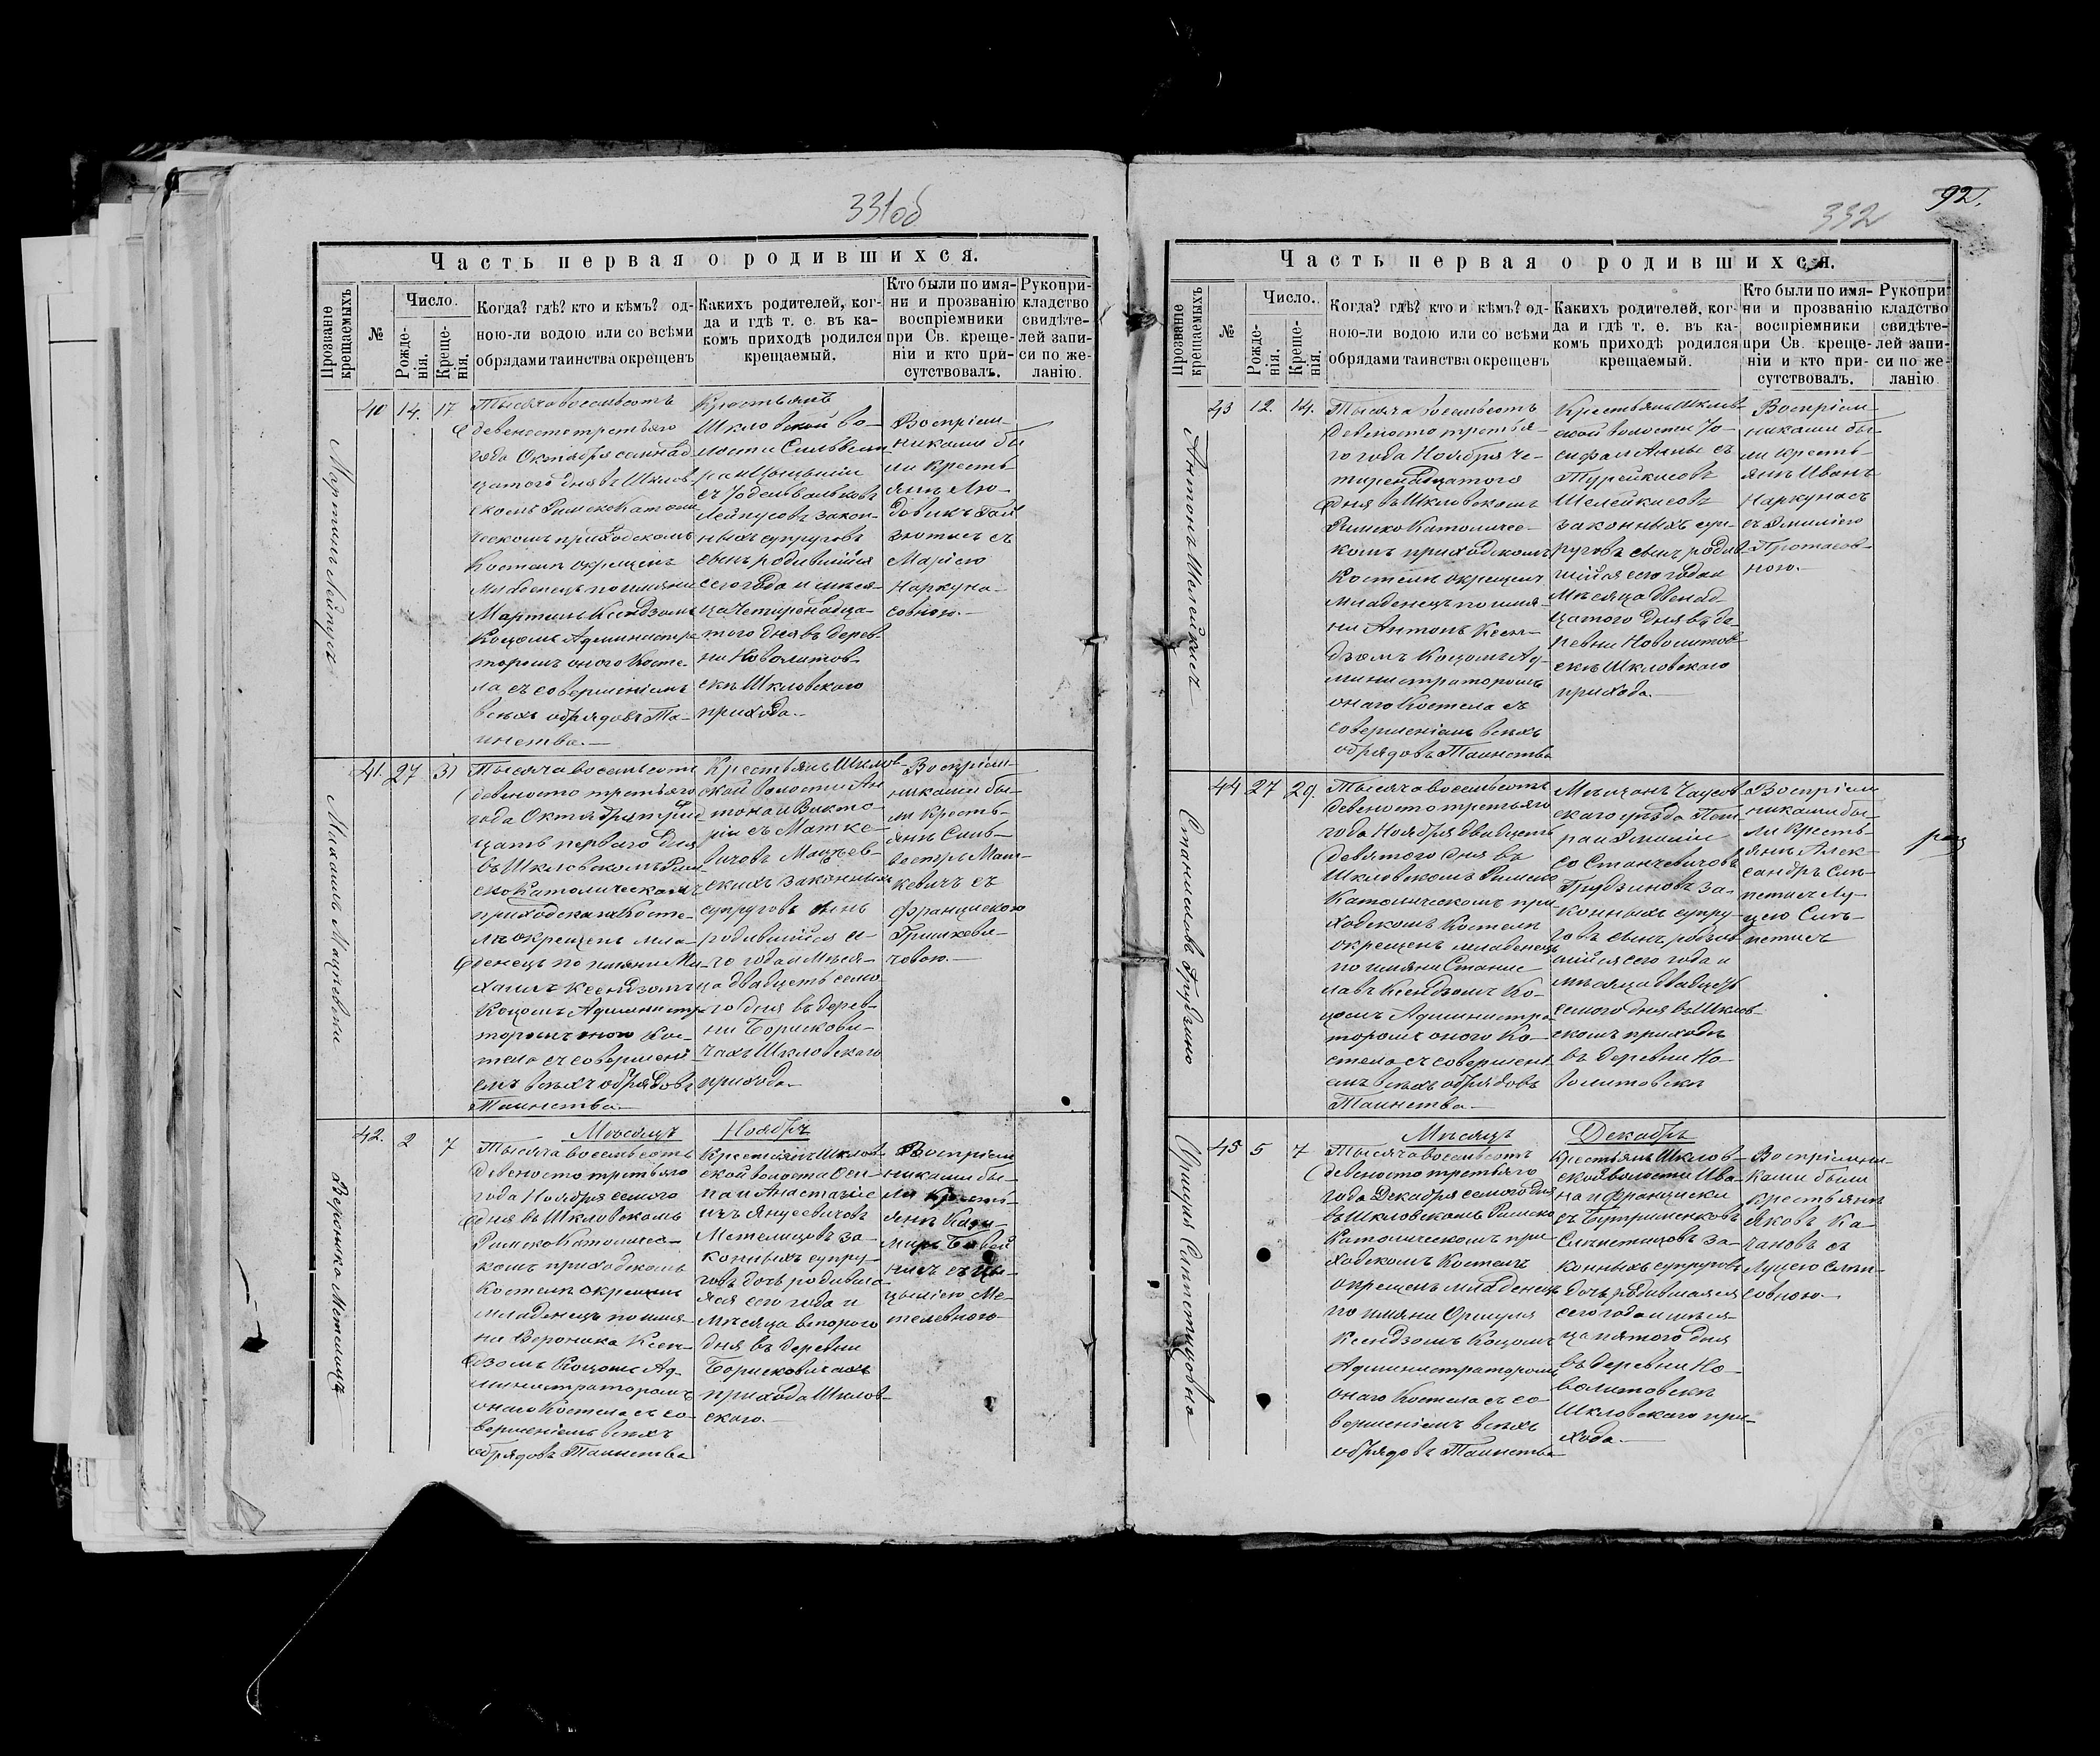 331об
Часть первая о родившихся.
Прозваніе крещаемыхъ
№
Число.
Рожденія.
Крещенія.
Когда? гдѣ? кто и кѣмъ? од-
ною-ли водою или со всѣми
обрядами таинства окрещенъ
Какихъ родителей, ког-
да и гдѣ т. е. въ ка-
комъ приходѣ родился
крещаемый.
Кто были по имя-
ни и прозванію
воспріемники
при Св. креще-
ніи и кто при-
сутствовалъ.
Рукопри-
кладство
свидѣте-
лей запи-
си по же-
ланію.
Мартинъ Лейпусъ
40 14. 17
Тысяча восемьсотъ
девеносто третьяго
года Октября семнад-
цатого дня въ Шклов-
скомъ Римско Католи-
ческомъ приходскомъ
Костелѣ окрещенъ
младенецъ по имяни
Мартинъ Ксендзомъ
Коцомъ Администра-
торомъ оного Косте-
ла съ совершеніемъ
всѣхъ обрядовъ Та-
инства.—
Крестьянъ
Шкловской во-
лости Сильвест-
ра и Цецыліи
Лейпусовъ закон-
ныхъ супруговъ
сынъ родившійся
сего года и мѣся-
ца Четырнадца-
того дня въ дерев-
ни Новолитов-
скѣ Шкловского
прихода.—
Воспріем-
никами бы-
ли Кресть-
янъ Лю-
двикъ
съ
Маріею
Наркуна-
совною.—
Михаилъ Мацѣевскій
41. 27 31
Тысяча восемьсотъ
девеносто третьяго
года Октября трид-
цать первого дня
въ Шкловскомъ Рим-
ско Католическомъ
приходскомъ Косте-
лѣ окрещенъ мла-
денецъ по имяни Ми-
хаилъ Ксендзомъ
Коцомъ Администра-
торомъ оного Кос-
тела съ совершені-
емъ всѣхъ обрядовъ
Таинства.—
Крестьянъ Шклов-
ской волости Ан-
тона и Викто-
ріи съ Матке-
вичовъ Мацѣев-
скихъ законныхъ
супруговъ сынъ
родившійся се-
го года и Мѣся-
ца двадцать семо-
го дня въ дерев-
ни Борискови-
чахъ Шкловского
прихода.—
Воспріем-
никами бы-
ли Кресть-
янъ Силь-
вестръ Мат-
кевичъ съ
Францискою
Гришкеви-
човою.—
Мѣсяцъ Ноябрь
Вероника Метелица
42. 2 7
Тысяча восемьсотъ
девеносто третьяго
года Ноября семого
дня въ Шкловскомъ
Римско Католичес-
комъ приходскомъ
Костелѣ окрещенъ
младенецъ по имя-
ни Вероника Ксен-
дзомъ Коцомъ Ад-
министраторомъ
оного Костела съ со-
вершеніемъ всѣхъ
обрядовъ Таинства
Крестьянъ Шклов-
ской волости Оси-
па и Анастазіе
изъ Янусевичовъ
Метелицовъ за-
конныхъ супру-
говъ дочь родивша-
яся сего года и
Мѣсяца второго
дня въ деревни
Борисковичахъ
прихода Шклов-
ского.—
Воспріем-
никами бы-
ли Кресть-
янъ Кази-
миръ
съ Це-
цыліею Ме-
телевною
92.
332
Часть первая о родившихся.
Прозваніе крещаемыхъ
№
Число.
Рожденія.
Крещенія.
Когда? гдѣ? кто и кѣмъ? од-
ною-ли водою или со всѣми
обрядами таинства окрещенъ
Какихъ родителей, ког-
да и гдѣ т. е. въ ка-
комъ приходѣ родился
крещаемый.
Кто были по имя-
ни и прозванію
воспріемники
при Св. креще-
ніи и кто при-
сутствовалъ.
Рукопри-
кладство
свидѣте-
лей запи-
си по же-
ланію.
Антонъ Шелейкисъ
43 12. 14.
Тысяча восемьсотъ
девеносто третья-
го года Ноября че-
тырнадцатого
дня въ Шкловскомъ
Римско Католичес-
комъ приходскомъ
Костелѣ окрещенъ
младенецъ по имя-
ни Антонъ Ксен-
дзомъ Коцомъ Ад-
министраторомъ
оного Костела съ
совершеніемъ всѣхъ
обрядовъ Таинства
Крестьянъ Шклов-
ской волости Іо-
сифа и Анны съ
Турейкисовъ
Шелейкисовъ
законныхъ суп-
руговъ сынъ родив-
шійся сего года и
Мѣсяца двенад-
цатого дня въ де-
ревни Новолитов-
скѣ Шкловского
прихода.—
Воспріем-
никами бы-
ли Кресть-
янъ Иванъ
Наркунасъ
съ Эмиліею
Протасов-
ною.—
Станиславъ Грудзино
44 27 29.
Тысяча восемьсотъ
девеносто третьяго
года Ноября двадцать
девятого дня въ
Шкловскомъ Римско
Католическомъ при-
ходскомъ Костелѣ
окрещенъ младенецъ
по имяни Станис-
лавъ Ксендзомъ Ко-
цомъ Администра-
торомъ оного Ко-
стела съ совершені-
емъ всѣхъ обрядовъ
Таинства.—
Мѣщанъ Чаусов-
ского уѣзда Пет-
ра и Эмиліи
со Станчевичовъ
Грудзиновъ за-
конныхъ супру-
говъ сынъ родив-
шійся сего года и
мѣсяца двадцать
семого дня въ Шклов-
скомъ приходѣ
въ деревни Но-
волитовскѣ
Воспріем-
никами бы-
ли Кресть-
янъ Алек-
сандръ Сип-
петисъ Лу-
цею Сип-
петисъ
Мѣсяцъ Декабрь
45 5 7
Тысяча восемьсотъ
девеносто третьяго
года Декабря семого дня
въ Шкловскомъ Римско
Католическомъ при-
ходскомъ Костелѣ
окрещенъ младенецъ
по имяни Оршуля
Ксендзомъ Коцомъ
Администраторомъ
оного Костела съ со-
вершеніемъ всѣхъ
обрядовъ Таинства
Крестьянъ Шклов-
ской волости Ива-
на и Франциски
съ Бутрименковъ
за-
конныхъ супруговъ
дочь родившаяся
сего года и мѣся-
ца пятого дня
въ деревни Но-
волитовскѣ
Шкловского при-
хода.—
Воспріемни-
ками были
Крестьянъ
Яковъ Ка-
чановъ съ
Луцею